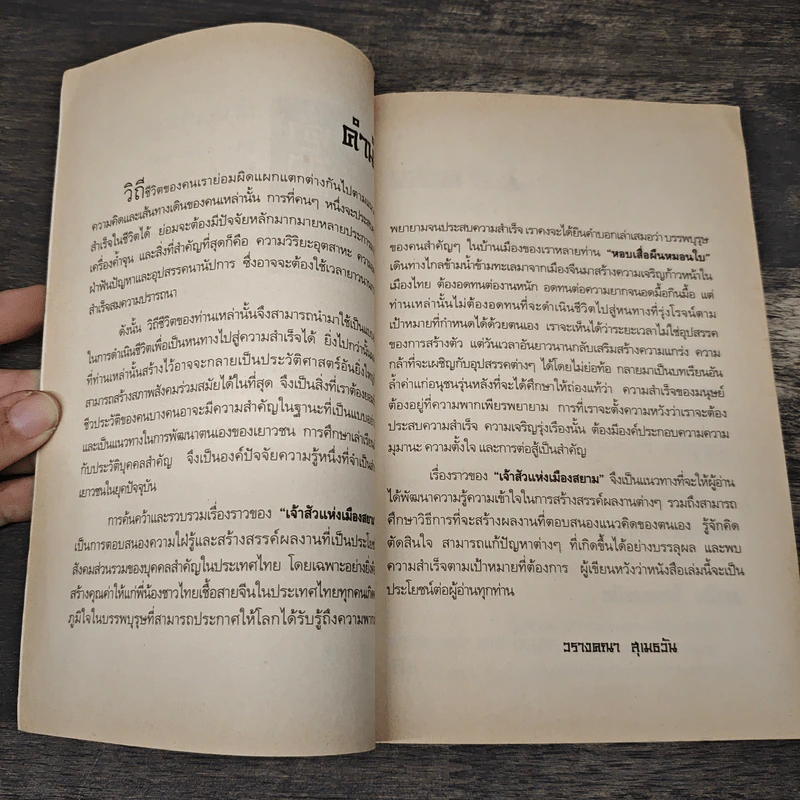 คำ
วิถีชีวิตของคนเราย่อมผิดแผกแตกต่างกันไปตาม
ความคิดและเส้นทางเดินของคนเหล่านั้น การที่คนๆ หนึ่งจะประสบ
สำเร็จในชีวิตได้ ย่อมจะต้องมีปัจจัยหลักมากมายหลายประการ
เครื่องค้ำจุน และสิ่งที่สำคัญที่สุดก็คือ ความวิริยะอุตสาหะ ความ
ฝ่าฟันปัญหาและอุปสรรคนานัปการ ซึ่งอาจจะต้องใช้เวลายาวนาน
สำเร็จสมความปรารถนา
ดังนั้น วิถีชีวิตของท่านเหล่านั้นจึงสามารถนำมาใช้เป็น
ในการดำเนินชีวิตเพื่อเป็นหนทางไปสู่ความสำเร็จได้ ยิ่งไปกว่านั้น
ที่ท่านเหล่านั้นสร้างไว้อาจจะกลายเป็นประวัติศาสตร์อันยิ่งใหญ่
สามารถสร้างสภาพสังคมร่วมสมัยได้ในที่สุด จึงเป็นสิ่งที่เราต้อง
ชีวประวัติของคนบางคนอาจจะมีความสำคัญในฐานะที่เป็น
และเป็นแนวทางในการพัฒนาตนเองของเยาวชน การศึกษาเล่าเรียน
กับประวัติบุคคลสำคัญ จึงเป็นองค์ปัจจัยความรู้หนึ่งที่จำเป็น
เยาวชนในยุคปัจจุบัน
การค้นคว้าและรวบรวมเรื่องราวของ "เจ้าสัวแห่งเมืองสยาม
เป็นการตอบสนองความใฝ่รู้และสร้างสรรค์ผลงานที่เป็นประโย
สังคมส่วนรวมของบุคคลสำคัญในประเทศไทย โดยเฉพาะอย่างยิ่ง
สร้างคุณค่าให้แก่พี่น้องชาวไทยเชื้อสายจีนในประเทศไทยทุกคนเกิด
ภูมิใจในบรรพบุรุษที่สามารถประกาศให้โลกได้รับรู้ถึงความพาก
พยายามจนประสบความสำเร็จ เราคงจะได้ยินคำบอกเล่าเสมอว่า บรรพบุรุษ
ของคนสำคัญๆ ในบ้านเมืองของเราหลายท่าน "หอบเสื่อผืนหมอนใบ"
เดินทางไกลข้ามน้ำข้ามทะเลมาจากเมืองจีนมาสร้างความเจริญก้าวหน้าใน
เมืองไทย ต้องอดทนต่องานหนัก อดทนต่อความยากจนอดมื้อกินมื้อ แต่
ท่านเหล่านั้นไม่ต้องอดทนที่จะดำเนินชีวิตไปสู่หนทางที่รุ่งโรจน์ตาม
เป้าหมายที่กำหนดได้ด้วยตนเอง เราจะเห็นได้ว่าระยะเวลาไม่ใช่อุปสรรค
ของการสร้างตัว แต่วันเวลาอันยาวนานกลับเสริมสร้างความแกร่ง ความ
กล้าที่จะเผชิญกับอุปสรรคต่างๆ ได้โดยไม่ย่อท้อ กลายมาเป็นบทเรียนอัน
ล้ำค่าแก่อนุชนรุ่นหลังที่จะได้ศึกษาให้ถ่องแท้ว่า ความสำเร็จของมนุษย์
ต้องอยู่ที่ความพากเพียรพยายาม การที่เราจะตั้งความหวังว่าเราจะต้อง
ประสบความสำเร็จ ความเจริญรุ่งเรืองนั้น ต้องมีองค์ประกอบความความ
มุมานะ ความตั้งใจ และการต่อสู้เป็นสำคัญ
เรื่องราวของ "เจ้าสัวแห่งเมืองสยาม" จึงเป็นแนวทางที่จะให้ผู้อ่าน
ได้พัฒนาความรู้ความเข้าใจในการสร้างสรรค์ผลงานต่างๆ รวมถึงสามารถ
ศึกษาวิธีการที่จะสร้างผลงานที่ตอบสนองแนวคิดของตนเอง รู้จักคิด
ตัดสินใจ สามารถแก้ปัญหาต่างๆ ที่เกิดขึ้นได้อย่างบรรลุผล และพบ
ความสำเร็จตามเป้าหมายที่ต้องการ ผู้เขียนหวังว่าหนังสือเล่มนี้จะเป็น
ประโยชน์ต่อผู้อ่านทุกท่าน
วรางคณา สุเมธวัน